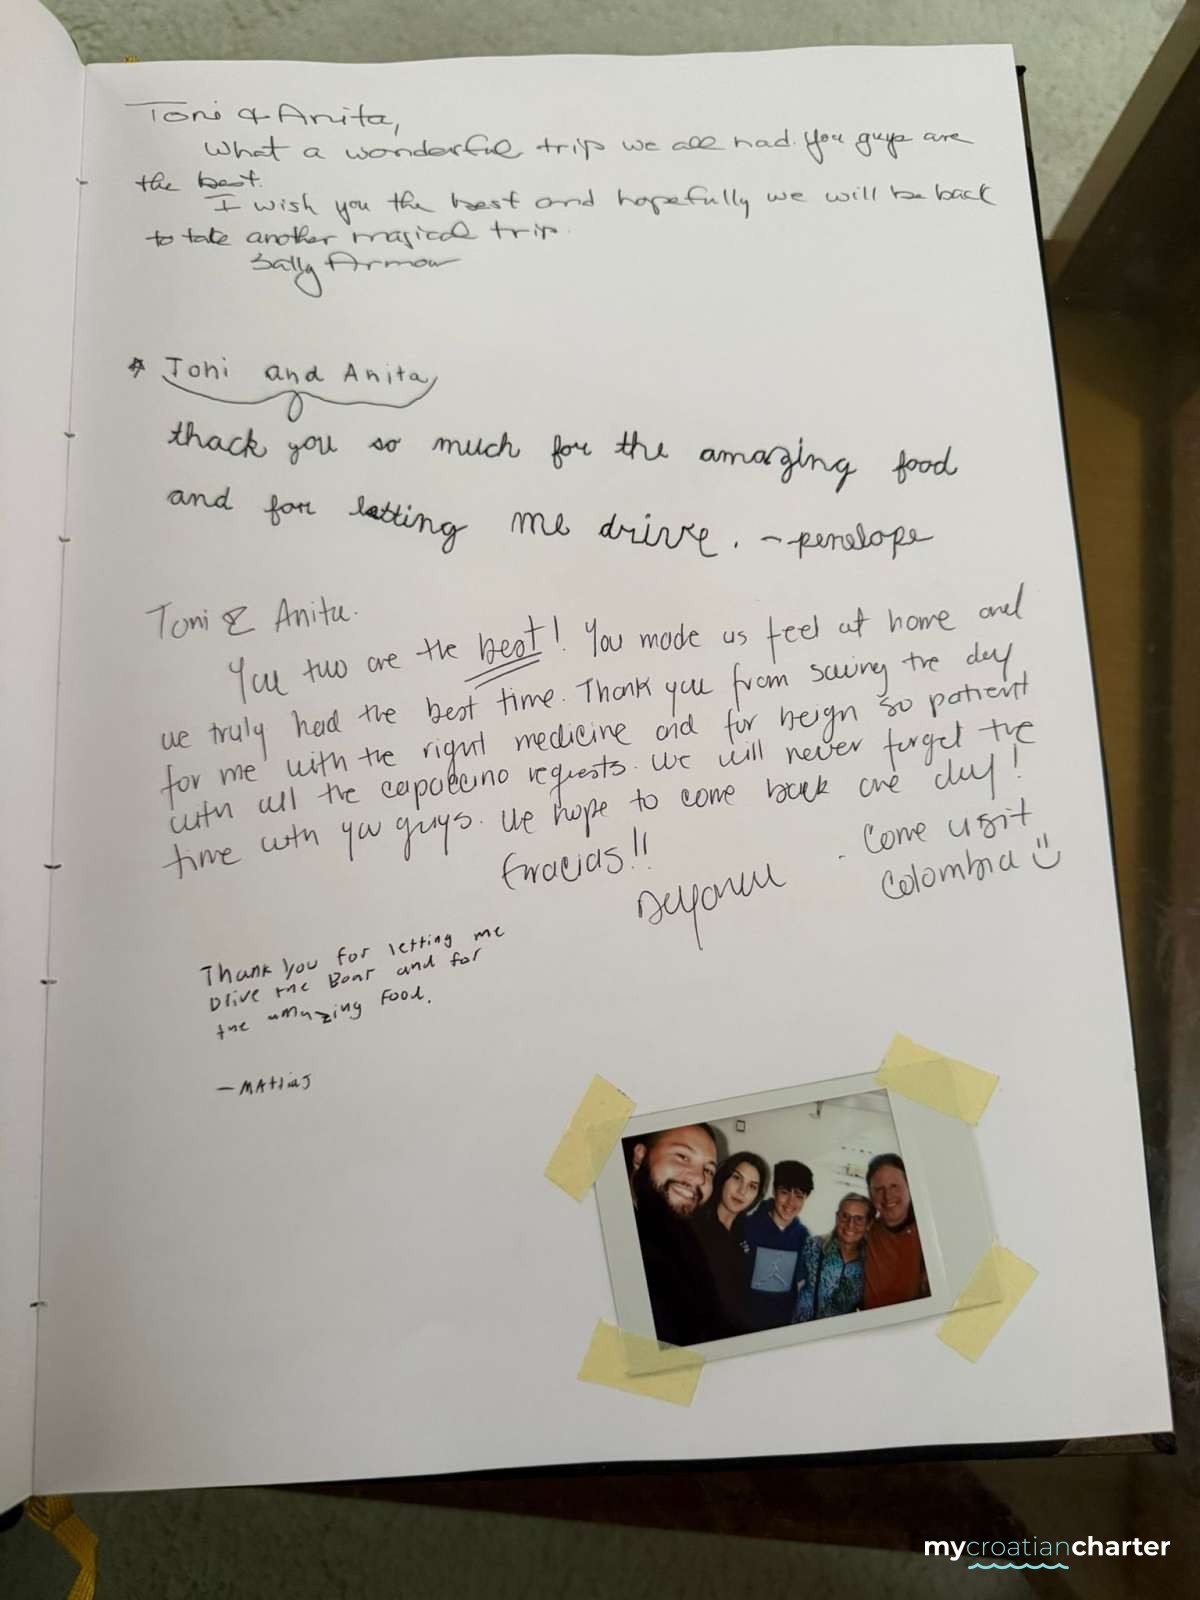 Toni & Anita,
What a wonderful trip we all had. You guys are
the best.
I wish you the best and hopefully we will be back
to take another magical trip.
Sally Armour
* Toni and Anita,
thack you so much for the amazing food
and for letting me drive. - penelope
Toni & Anita.
You two are the best! You made us feel at home and
we truly had the best time. Thank you from saving the day
for me with the right medicine and for beign so patient
with all the capuccino requests. We will never forget the
time with you guys. We hope to come back one day!
Gracias!!
- Come visit
Colombia
Thank you for letting me
Drive the Boat and for
the amazing food.
- Mattias
mycroatiancharter